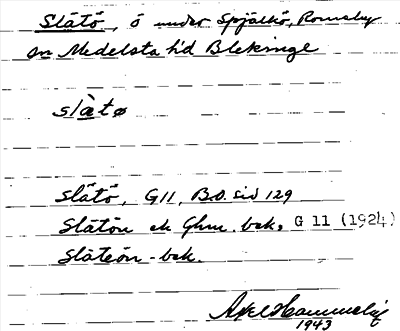 Slätö, ö under Spjälkö, Ronneby
sn Medelsta hd Blekinge
slàtø
Slätö, G11, B.D. sid 129
Slätön ek Ghm. bek. G 11 (1924)
Släteön - bek.
Axel Hammelig
1943